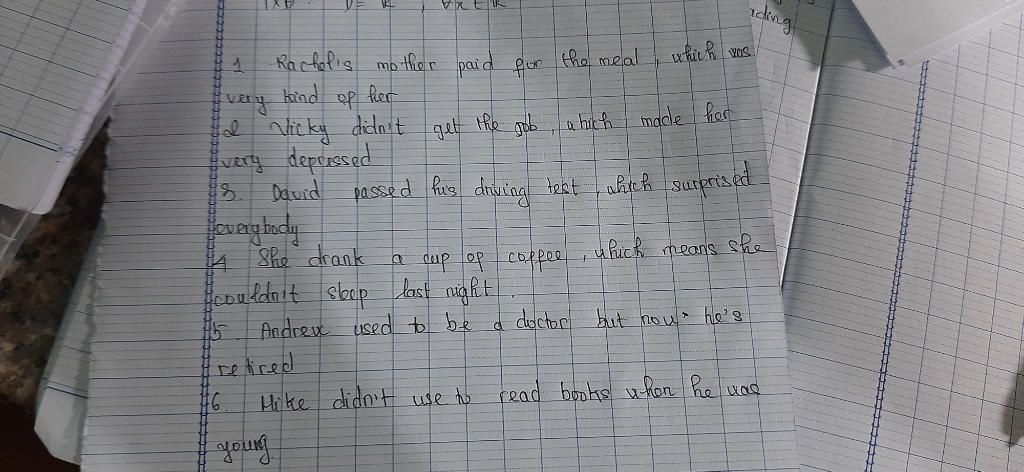 rding
1 Rachel's mother paid for the meal, which was
very kind of her
2 Vicky didn't get the job, which made her
very depressed
3. David passed his driving test, which surprised
everybody
4 She drank a cup of coffee, which means she
couldn't sleep last night.
5. Andrew used to be a doctor but now he's
retired
6. Mike didn't use to read books when he was
young